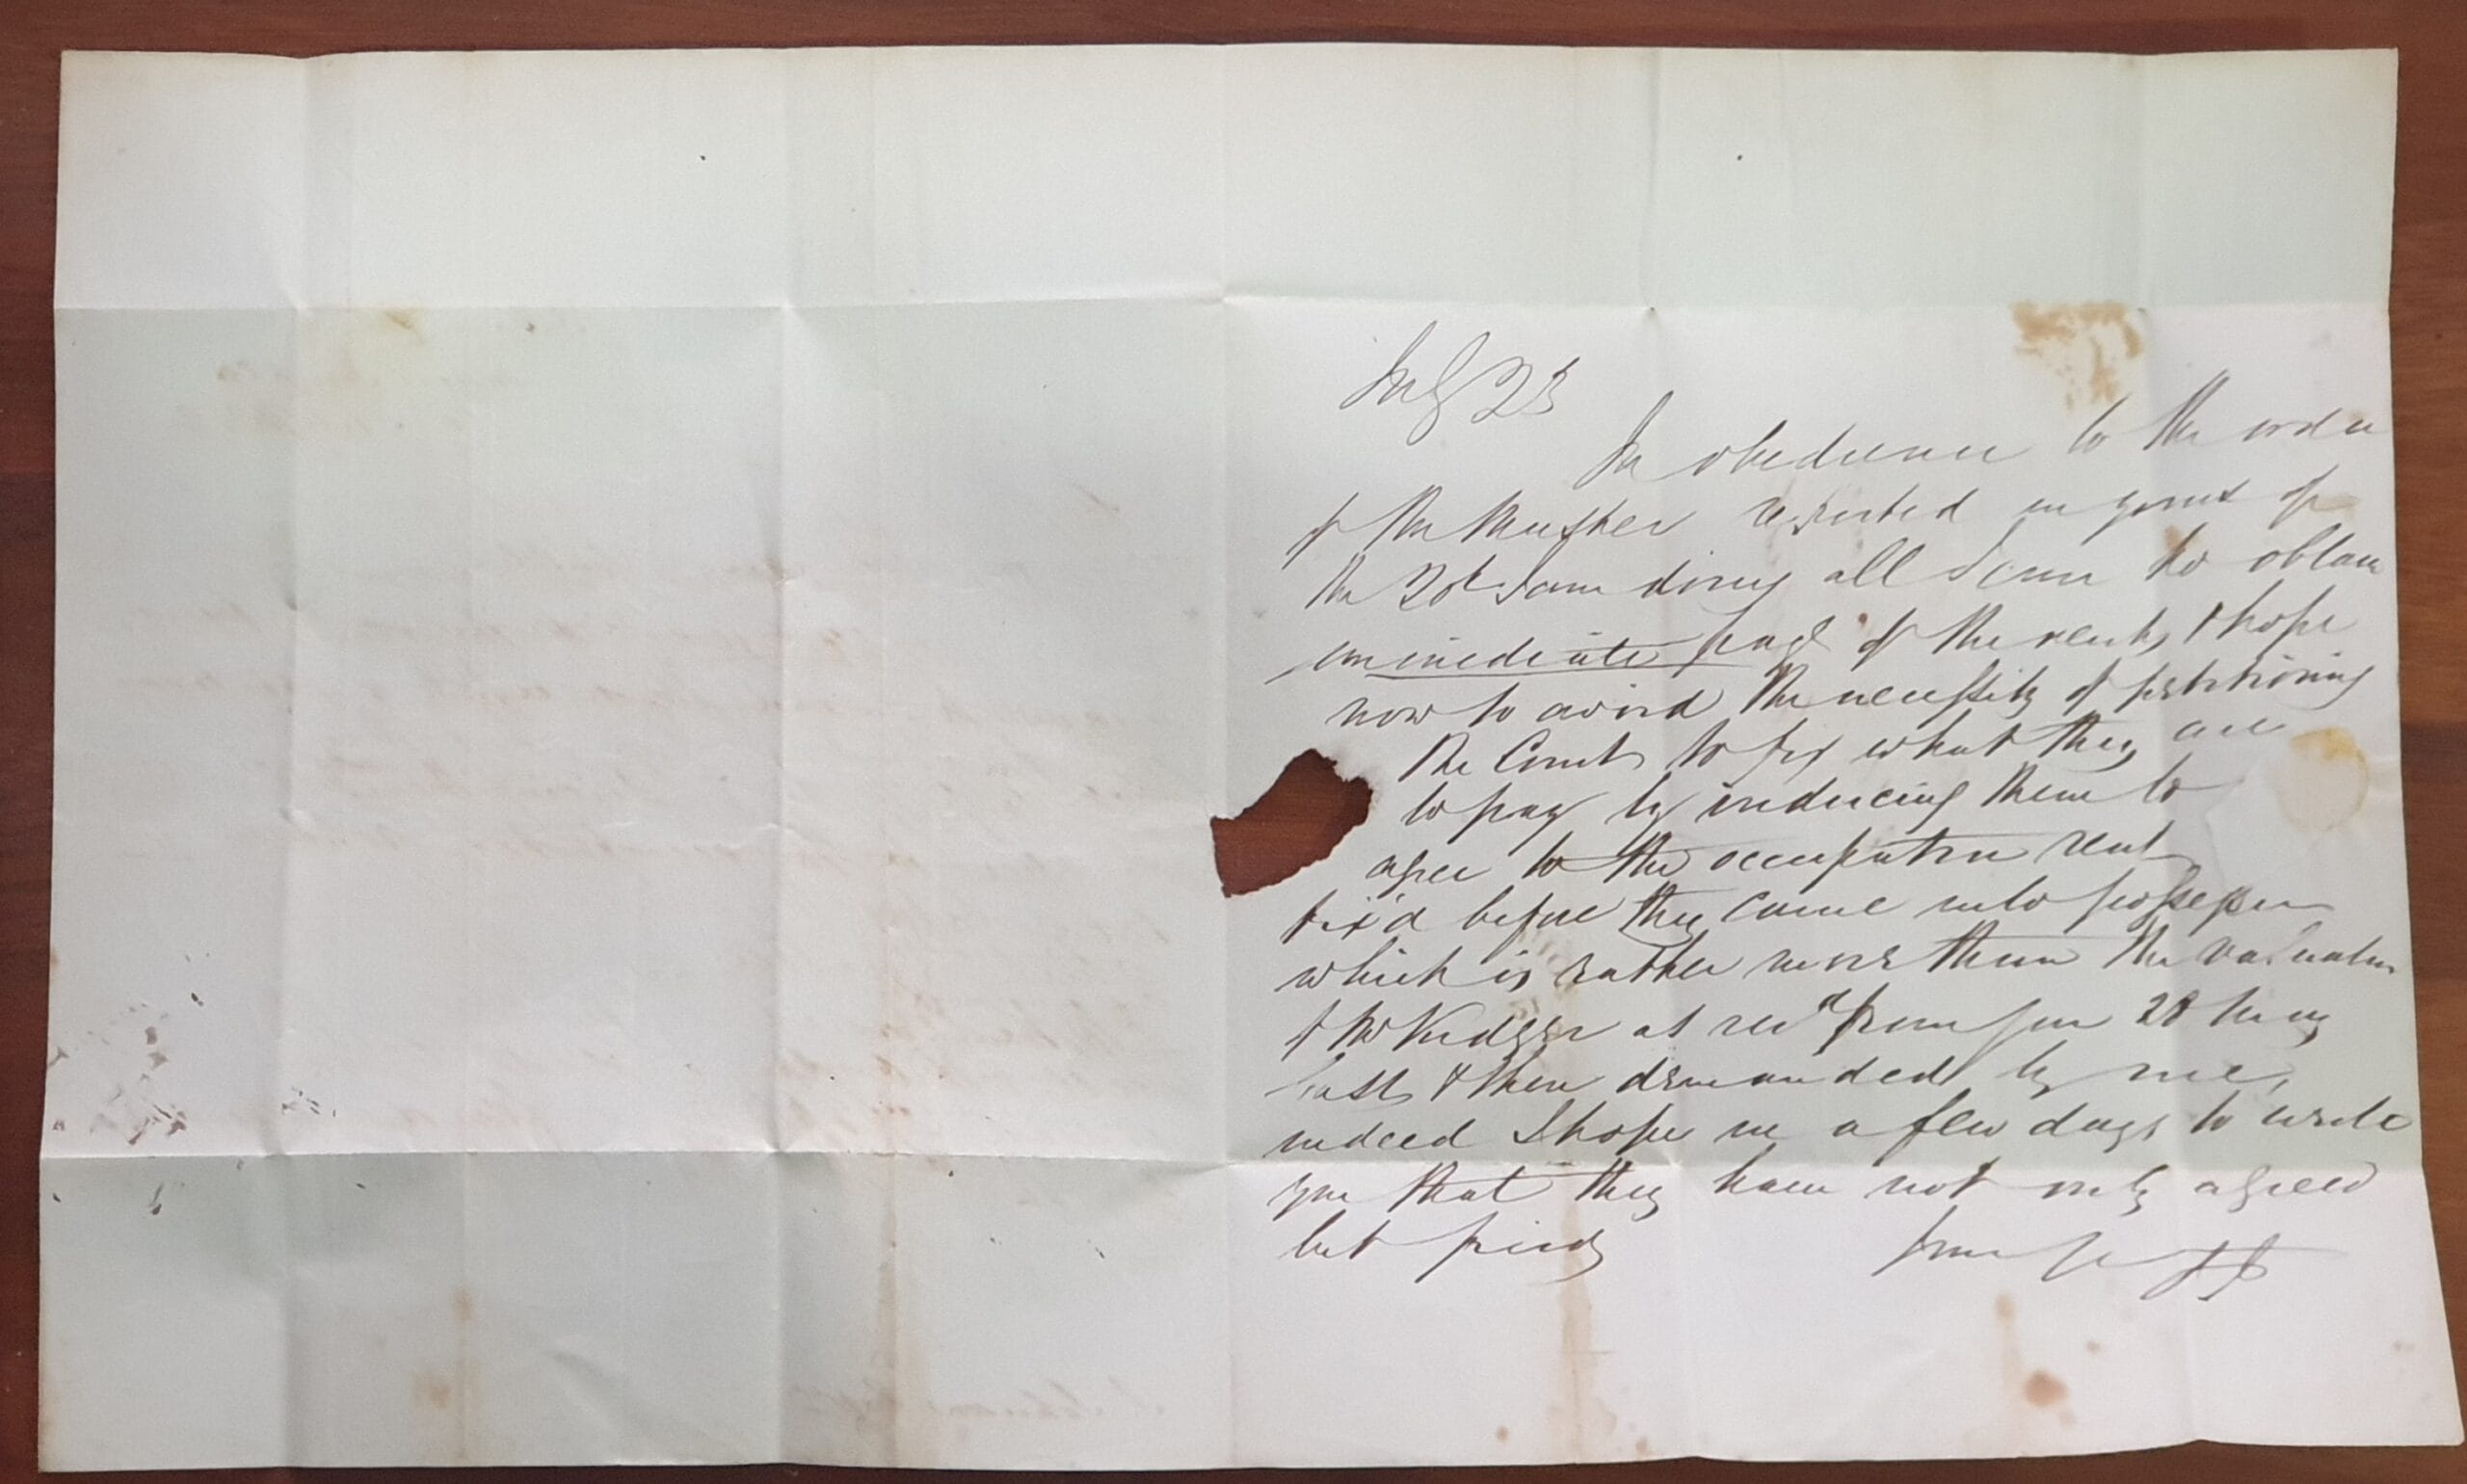 July 23
In obedience to the order
of the Master reported in yours of
the 20t I am doing all I can to obtain
immediate pay't of the rents, & hope
now to avoid the necessity of petitioning
the Court to fix what they are
to pay by inducing them to
agree to the occupation rent
fix'd before they came into possession
which is rather more than the valuation
of Mr at
last & then demanded by me,
indeed I hope in a few days to write
you that they have not only agreed
but